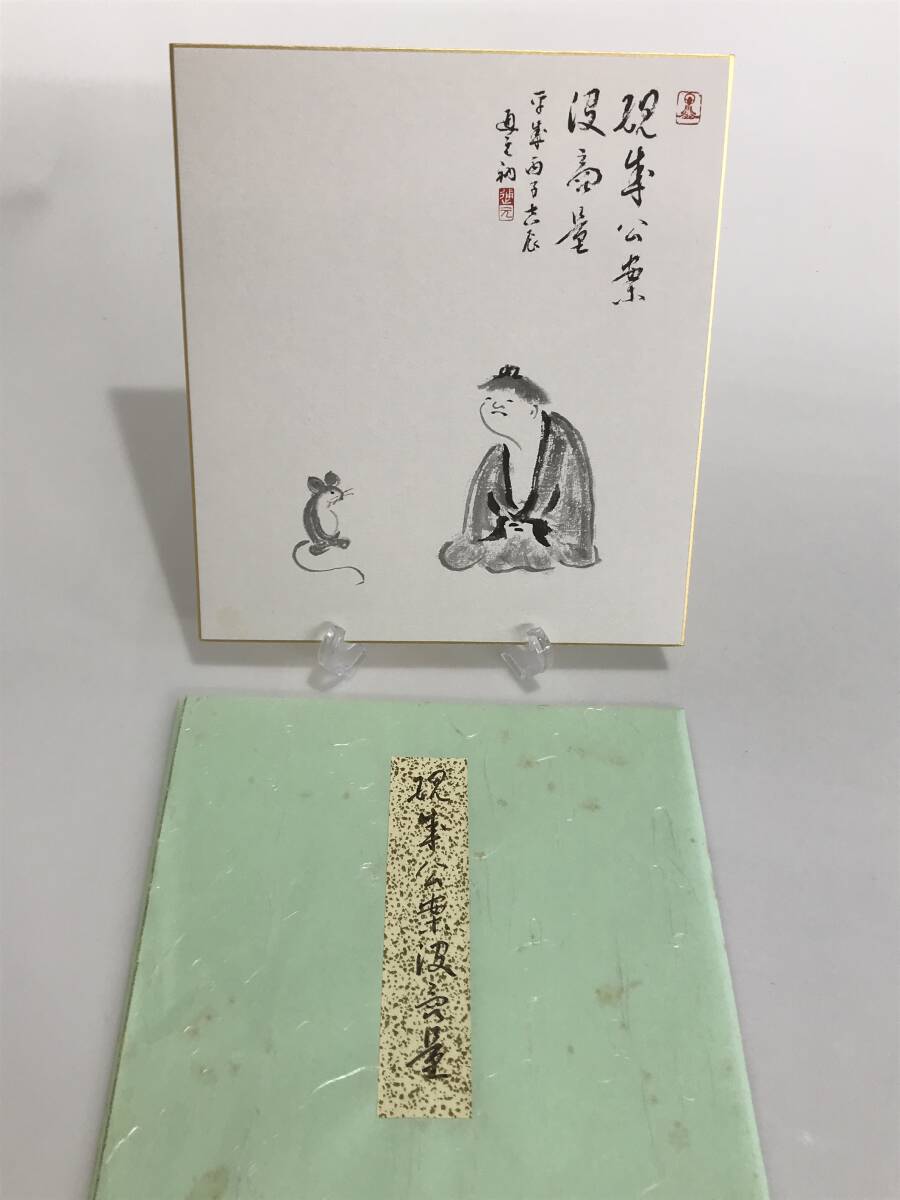 現成公案
没商量
平成丙子吉辰
現成公案没商量